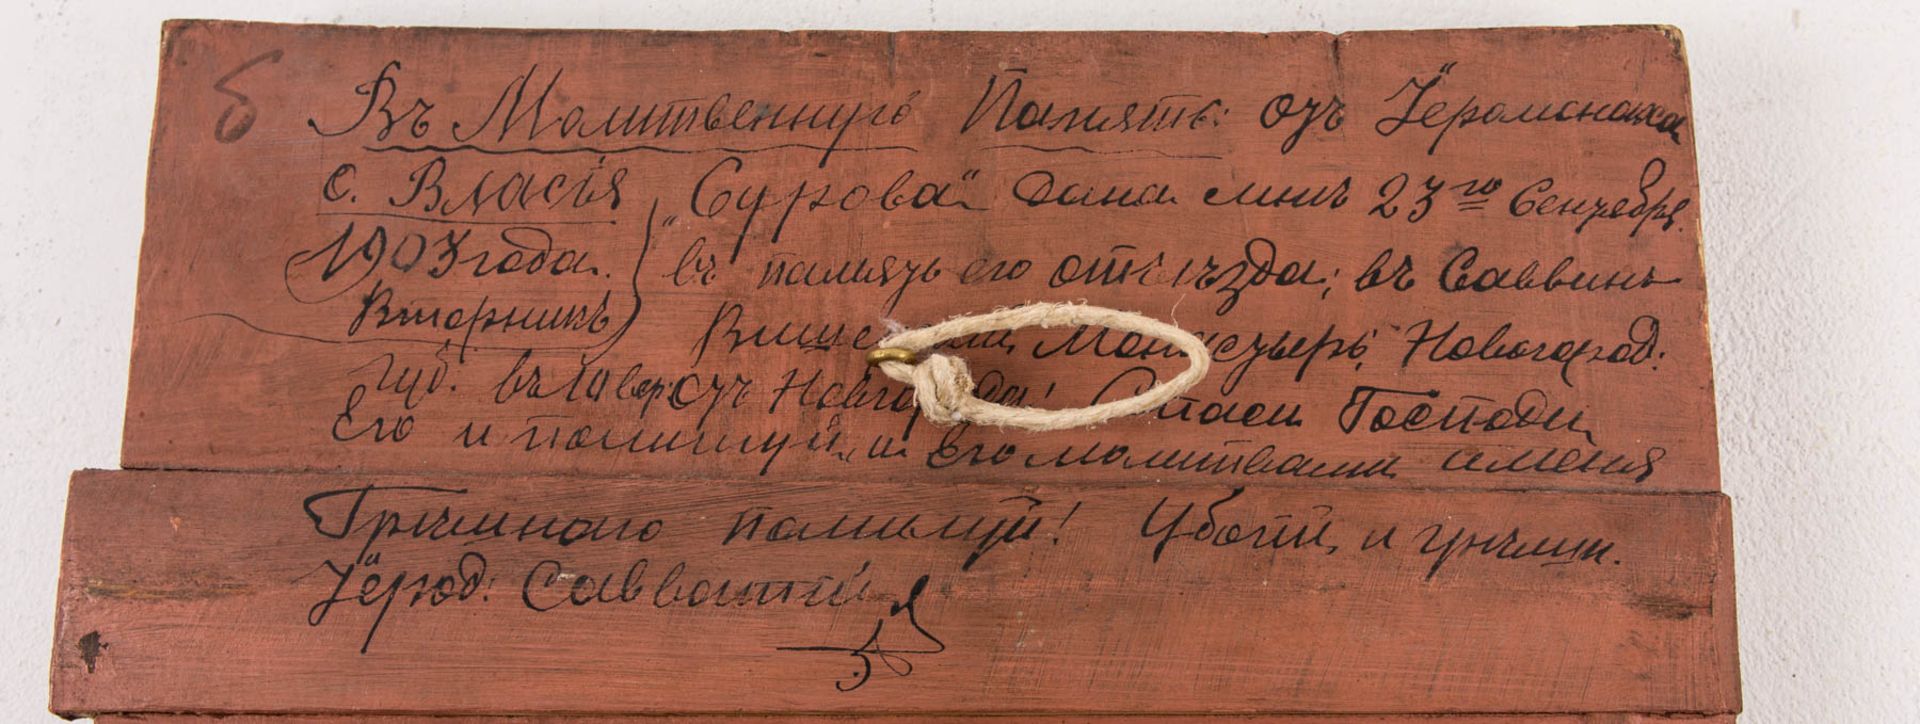 б
Въ Молитвенную Память: отъ Іеромонаха
о. Власія „Сурова" дана мнѣ 23го Сентября
1903 года. въ память его отъѣзда; въ Саввинъ
Вторникъ Монастырь, Новогород.
Губ. Новгорода! Спаси Господи
Его и помилуй, и Его молитвами меня
Грѣшнаго помилуй! Убогій и грѣшн.
Іерод. Савватій